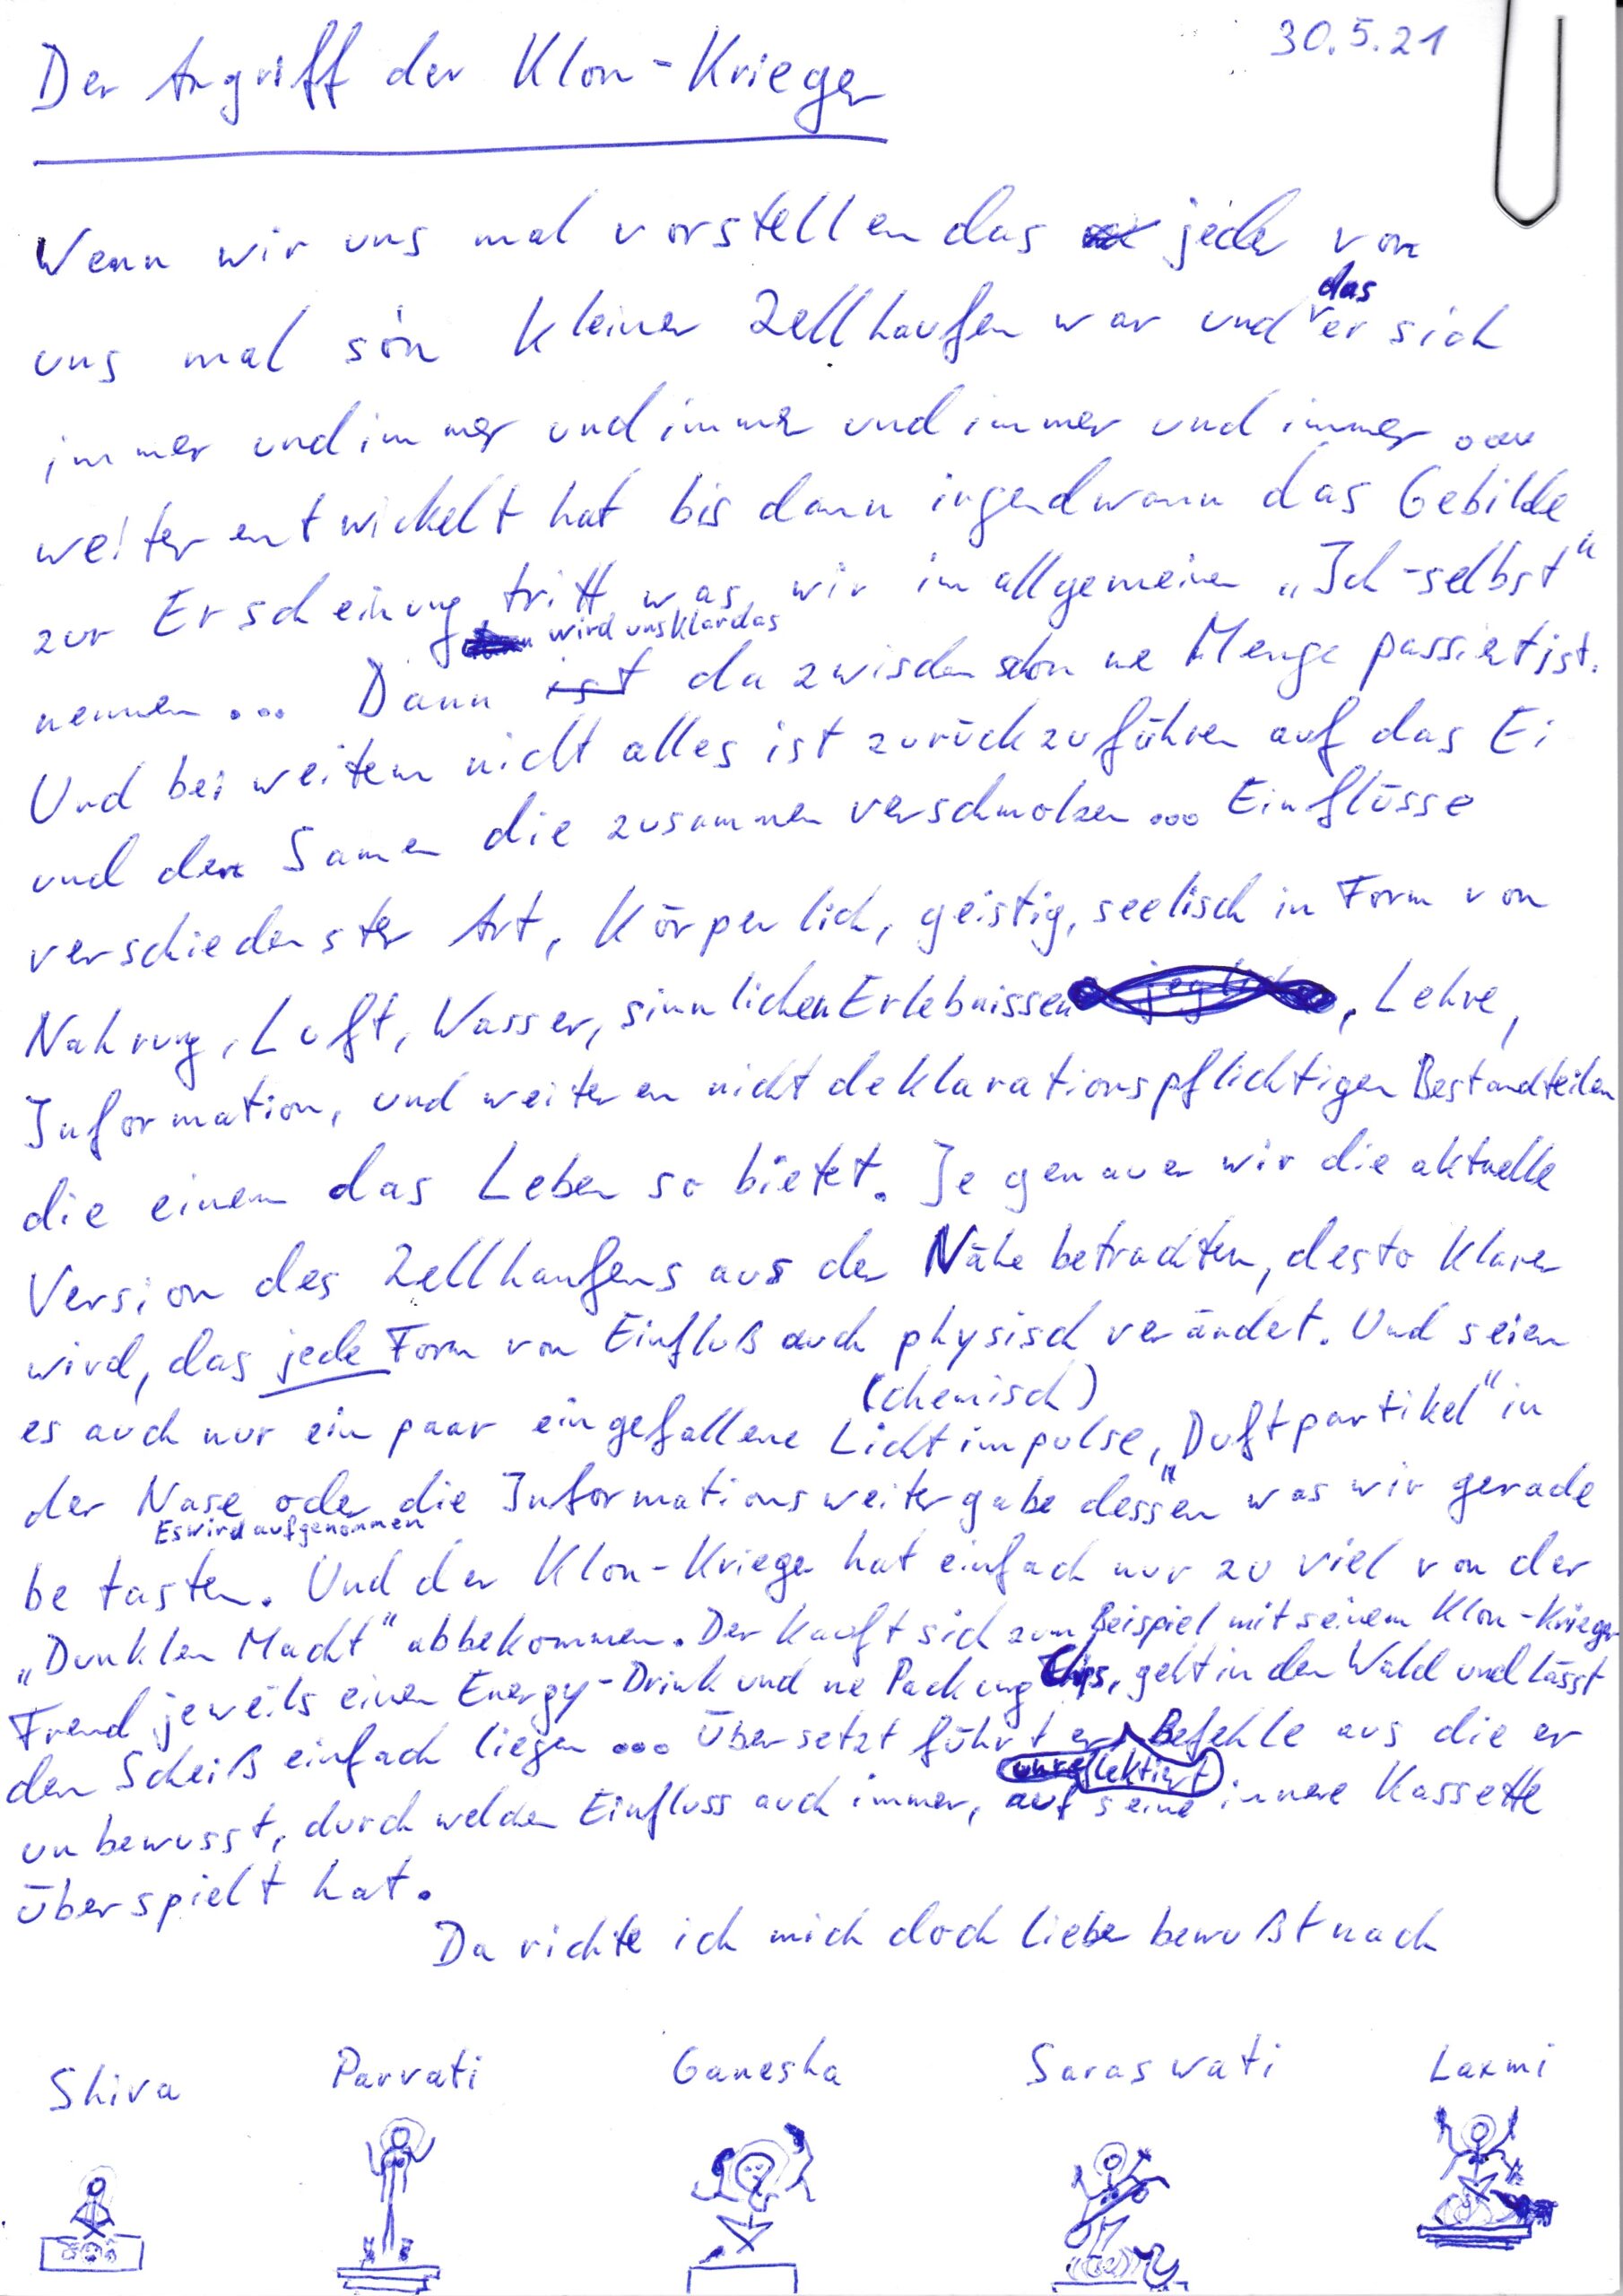 30.5.21
Der Angriff der Klon-Krieger
Wenn wir uns mal vorstellen das jeder von
uns mal so'n kleiner Zellhaufen war und das er sich
immer und immer und immer und immer und immer
weiter entwickelt hat bis dann irgendwann das Gebilde
zur Erscheinung tritt was wir im allgemeinen „Ich-selbst“
nennen... Dann ist wird uns klar das da zwischen schon ne Menge passiert ist.
Und bei weitem nicht alles ist zurückzuführen auf das Ei
und den Samen die zusammen verschmolzen... Einflüsse
verschiedenster Art, Körperlich, geistig, seelisch in Form von
Nahrung, Luft, Wasser, sinnlichen Erlebnissen, Lehre,
Information, und weiteren nicht deklarationspflichtigen Bestandteilen
die einem das Leben so bietet. Je genauer wir die aktuelle
Version des Zellhaufens aus der Nähe betrachten, desto klarer
wird, das jede Form von Einfluß auch physisch verändert. Und seien
(chemisch)
es auch nur ein paar eingefallene Lichtimpulse, „Duftpartikel“ in
der Nase oder die Informationsweitergabe dessen was wir gerade
Es wird aufgenommen
betasten. Und der Klon-Krieger hat einfach nur zu viel von der
„Dunklen Macht“ abbekommen. Der kauft sich zum Beispiel mit seinem Klon-Krieger
Freund jeweils einen Energy-Drink und ne Packung Chips, geht in den Wald und lässt
den Scheiß einfach liegen... Übersetzt führt er Befehle aus die er
unreflektiert
unbewusst, durch welchen Einfluss auch immer, auf seine innere Kassette
überspielt hat.
Da richte ich mich doch lieber bewußt nach
Shiva Parvati Ganesha Saraswati Laxmi